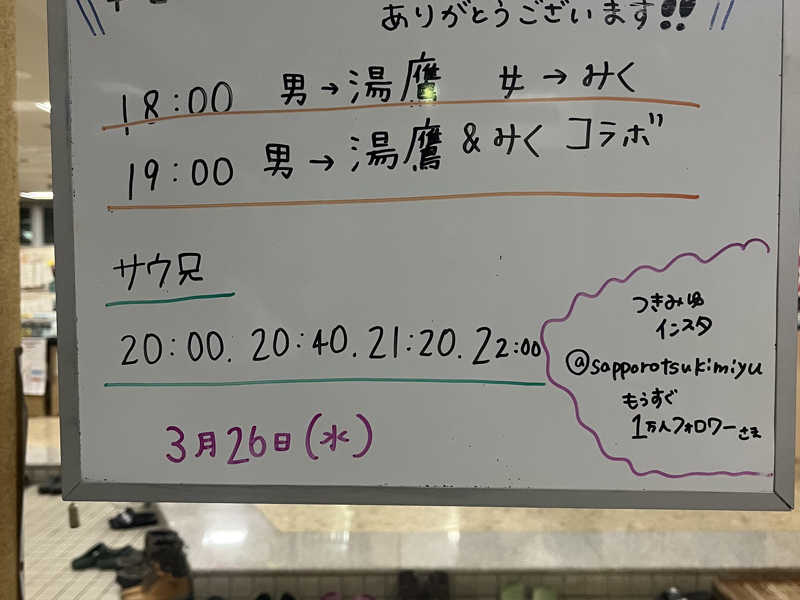 ありがとうございます!!
18:00 男→湯鷹 女→みく
19:00 男→湯鷹&みくコラボ
サウ兄
20:00. 20:40. 21:20. 22:00
3月26日(水)
つきみゆ
インスタ
@sapporotsukimiyu
もうすぐ
1万人フォロワーさま